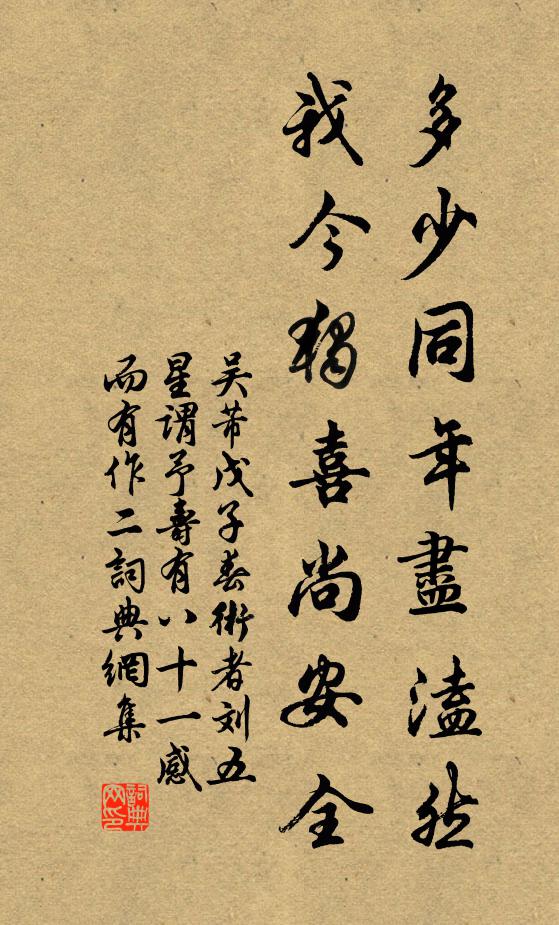 多少同年盡溘然
我今獨喜尚安全
吴芾戊子春術者刘五
星謂予壽有八十一感
而有作二詞典網集
詞典
网印